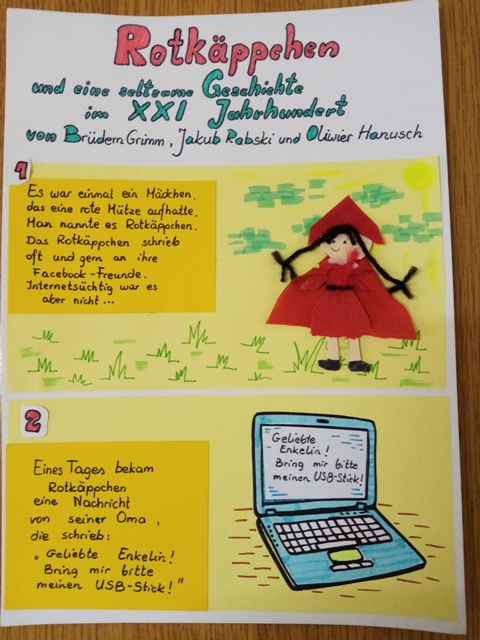 Rotkäppchen
und eine seltsame Geschichte
im XXI Jahrhundert
von Brüdern Grimm, Jakub Rabski und Oliwier Hanusch
1
Es war einmal ein Mädchen,
das eine rote Mütze aufhatte.
Man nannte es Rotkäppchen.
Das Rotkäppchen schrieb
oft und gern an ihre
Facebook-Freunde.
Internetsüchtig war es
aber nicht...
2
Eines Tages bekam
Rotkäppchen
eine Nachricht
von seiner Oma,
die schrieb:
„Geliebte Enkelin!
Bring mir bitte
meinen USB-Stick!"
Geliebte
Enkelin!
Bring mir bitte
meinen USB-Stick!